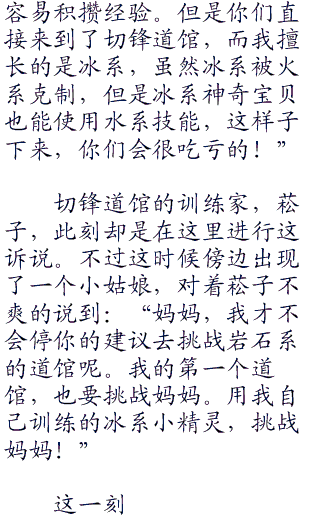 容易积攒经验。但是你们直
接来到了切锋道馆，而我擅
长的是冰系，虽然冰系被火
系克制，但是冰系神奇宝贝
也能使用水系技能，这样子
下来，你们会很吃亏的！”
切锋道馆的训练家，菘
子，此刻却是在这里进行这
诉说。不过这时候傍边出现
了一个小姑娘，对着菘子不
爽的说到：“妈妈，我才不
会停你的建议去挑战岩石系
的道馆呢。我的第一个道
馆，也要挑战妈妈。用我自
己训练的冰系小精灵，挑战
妈妈！”
这一刻